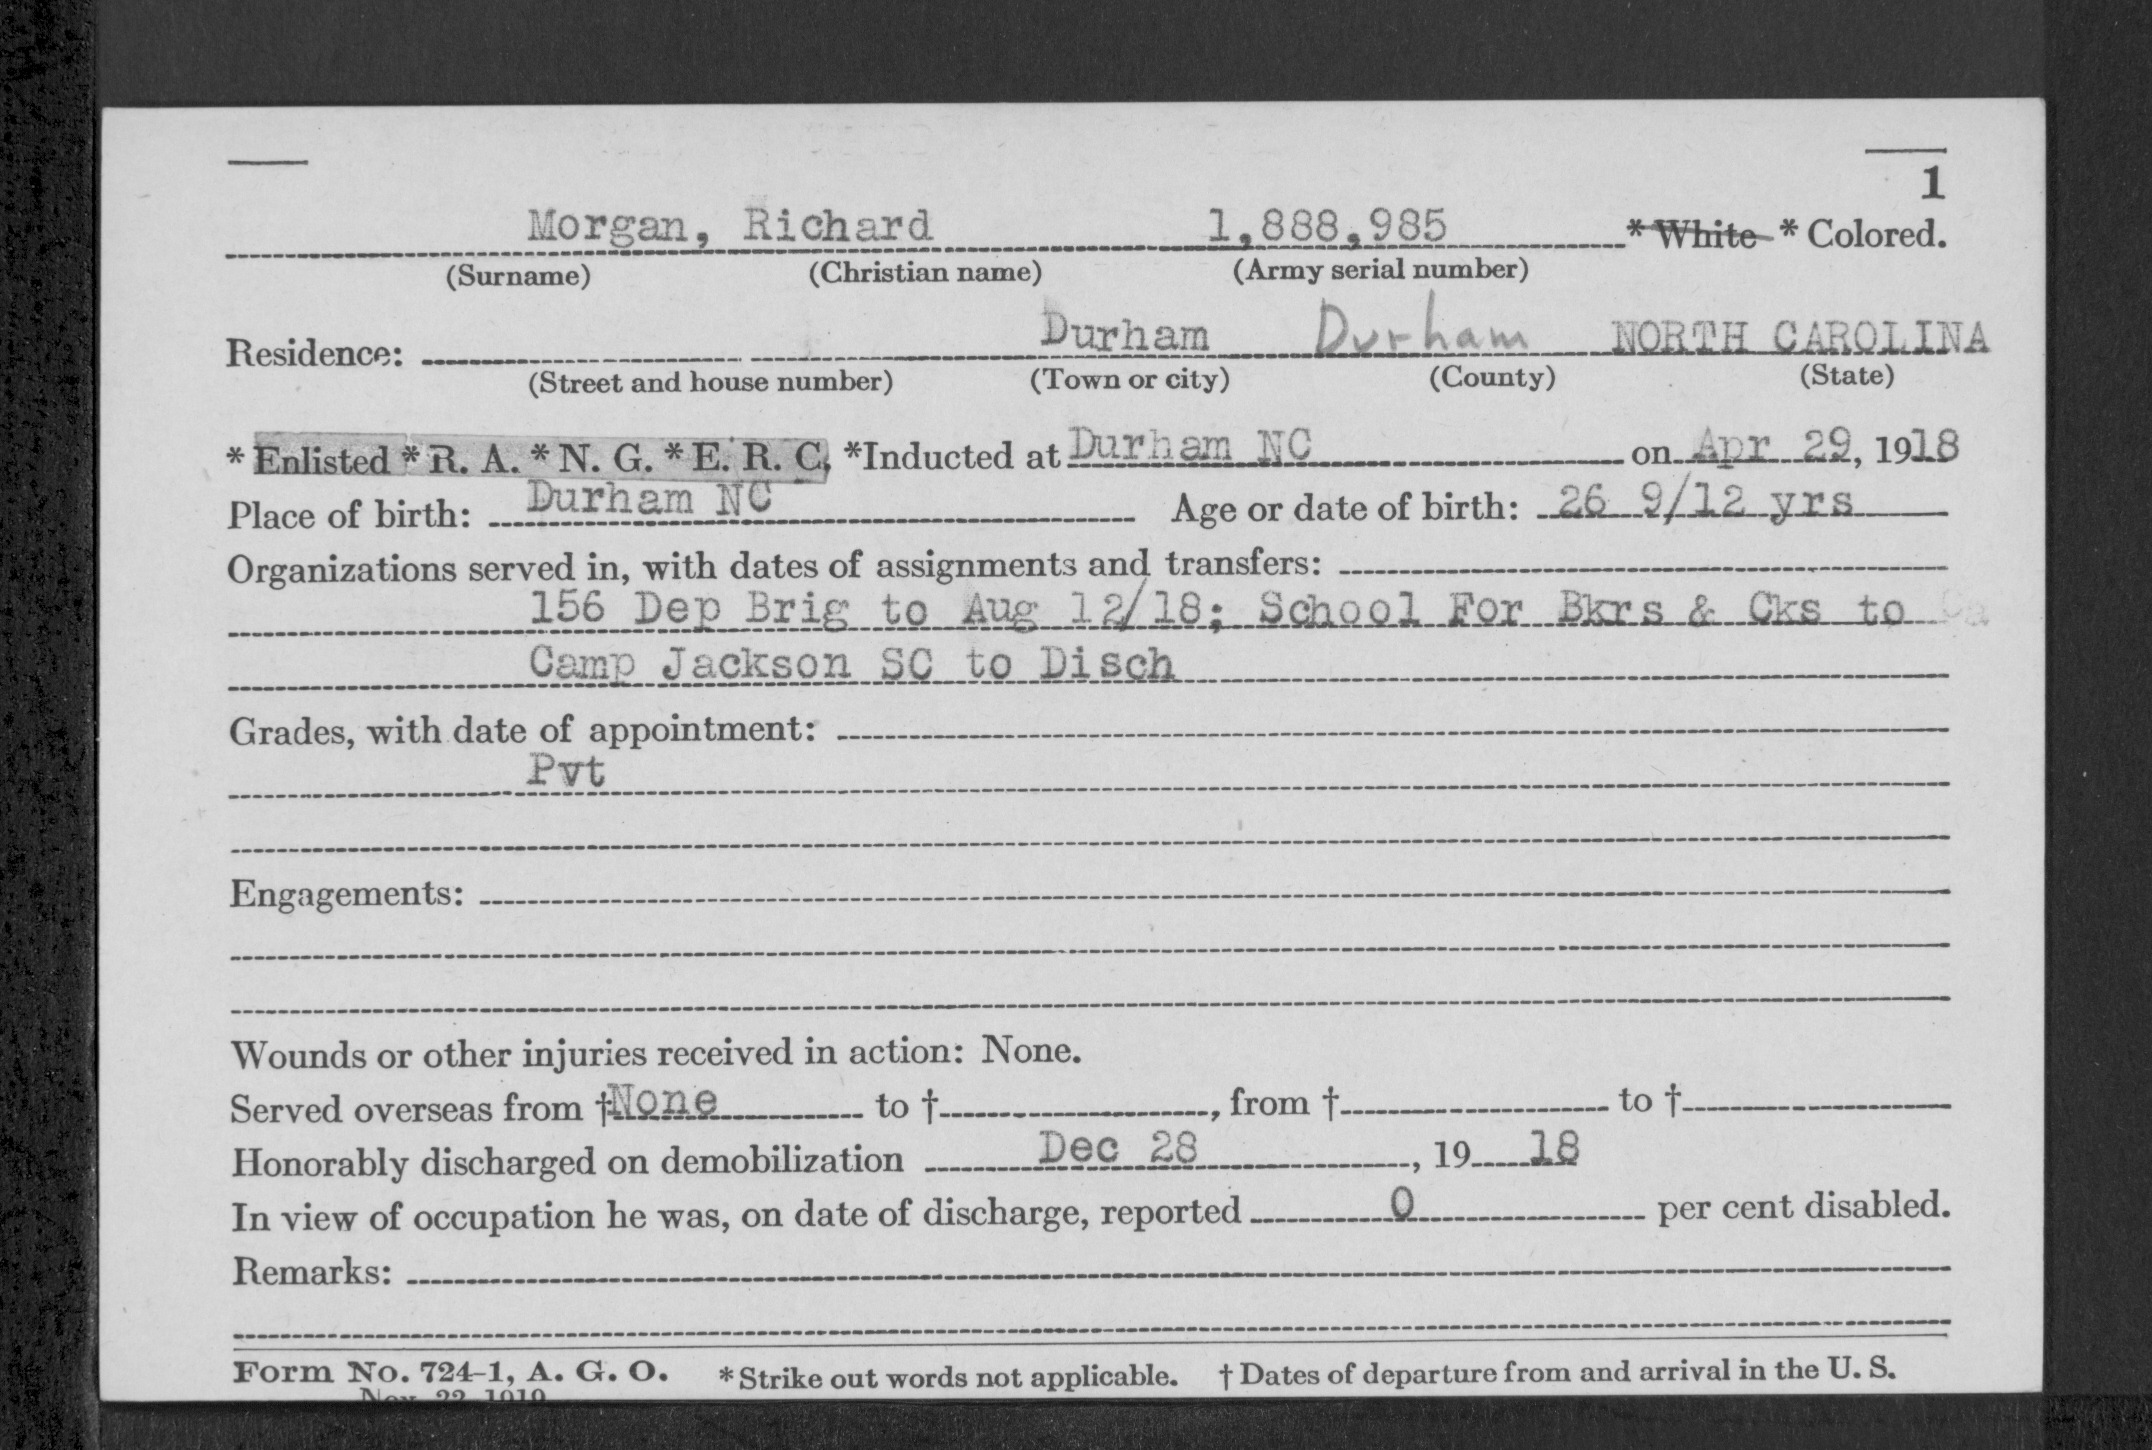 1
Morgan, Richard 1,888,985 * White * Colored.
(Surname) (Christian name) (Army serial number)
Residence: Durham Durham NORTH CAROLINA
(Street and house number) (Town or city) (County) (State)
* Enlisted * R. A. * N. G. * E. R. C. *Inducted at Durham NC on Apr 29, 1918
Place of birth: Durham NC Age or date of birth: 26 9/12 yrs
Organizations served in, with dates of assignments and transfers:
156 Dep Brig to Aug 12/18; School For Bkrs & Cks to Ca
Camp Jackson SC to Disch
Grades, with date of appointment:
Pvt
Engagements:
Wounds or other injuries received in action: None.
Served overseas from †None to †, from † to †
Honorably discharged on demobilization Dec 28, 1918
In view of occupation he was, on date of discharge, reported 0 per cent disabled.
Remarks:
Form No. 724-1, A. G. O. *Strike out words not applicable. † Dates of departure from and arrival in the U. S.
Nov. 22, 1919